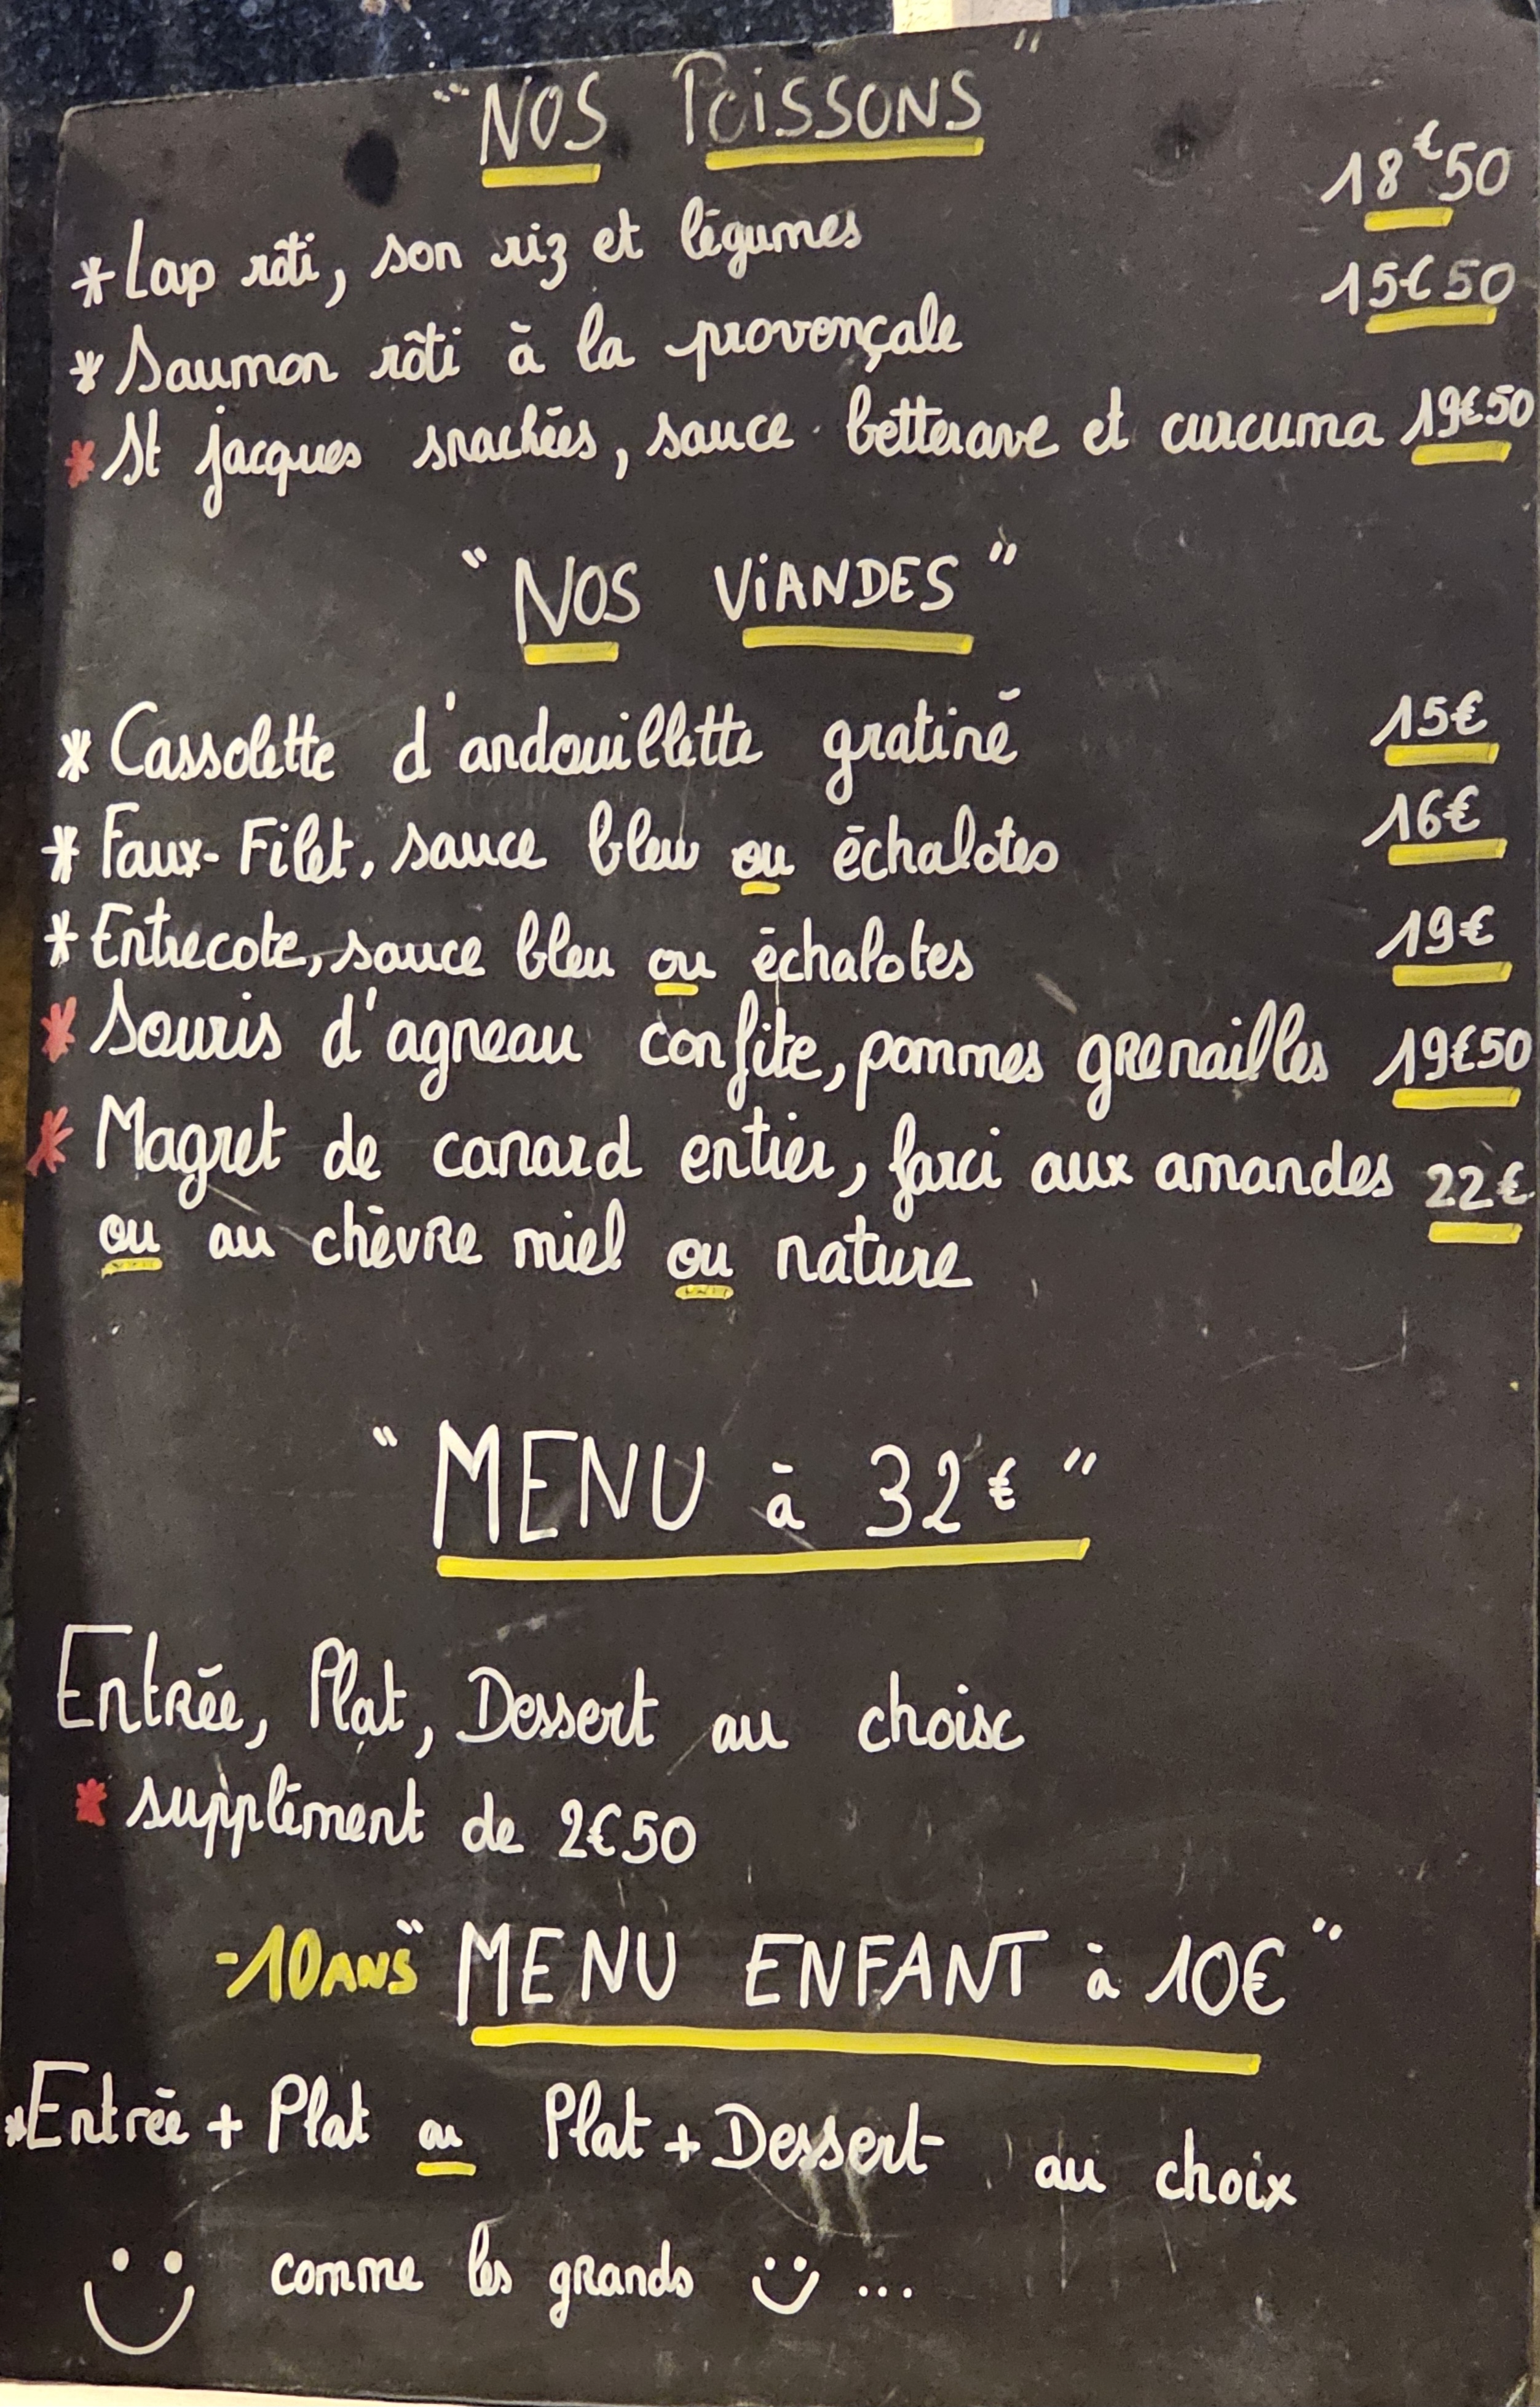 "NOS POISSONS"
* Lap rôti, son riz et légumes 18€50
* Saumon rôti à la provençale 15€50
* St jacques snackées, sauce betterave et curcuma 19€50
"NOS VIANDES"
* Cassolette d'andouillette gratiné 15€
* Faux-Filet, sauce bleu ou échalotes 16€
* Entrecote, sauce bleu ou échalotes 19€
* Souris d'agneau confite, pommes grenailles 19€50
* Magret de canard entier, farci aux amandes 22€
ou au chèvre miel ou nature
"MENU à 32€"
Entrée, Plat, Dessert au choix
* supplément de 2€50
-10ANS "MENU ENFANT à 10€"
*Entrée + Plat ou Plat + Dessert au choix
comme les grands ...